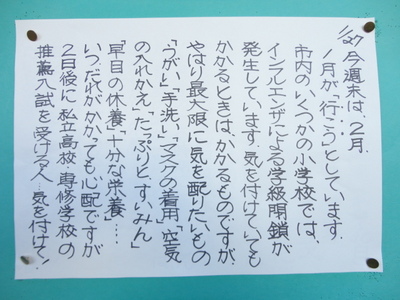 1/27 今週末は、2月.
1月が「行こう」としています.
市内のいくつかの小学校では、
インフルエンザによる学級閉鎖が
発生しています.気を付けていても
かかるときは、かかるものですが、
やはり最大限に気を配りたいもの
「うがい」「手洗い」「マスクの着用」「空気
の入れかえ」「たっぷりと、すいみん」
「早目の休養」「十分な栄養」…
いつ、だれが、かかっても心配ですが
2日後に私立高校、専修学校の
推薦入試を受ける人…気を付けて!